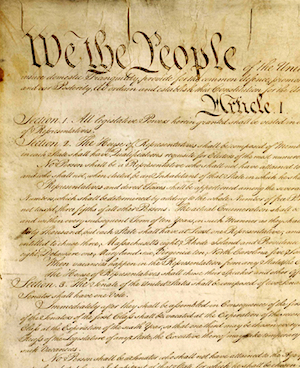 We the People of the Unit
insure domestic Tranquility, provide for the common defence, promo
and our Posterity, do ordain and establish this Constitution for the Uni
Article. I.
Section. 1. All legislative Powers herein granted shall be vested in a
of Representatives.
Section. 2. The House of Representatives shall be composed of Mem
in each State shall have Qualifications requisite for Electors of the most numer
No Person shall be a Representative who shall not have attained
and who shall not, when elected, be an Inhabitant of that State in which he
Representatives and direct Taxes shall be apportioned among the several
Numbers, which shall be determined by adding to the whole Number of free
not taxed, three fifths of all other Persons. The actual Enumeration shall
and within every subsequent Term of ten Years, in such Manner as
thirty Thousand, but each State shall have at Least one Representative; and
entitled to chuse three, Massachusetts eight, Rhode Island and Providence
eight, Delaware one, Maryland six, Virginia ten, North Carolina five,
When vacancies happen in the Representation from any
The House of Representatives shall chuse their Speaker and other
Section. 3. The Senate of the United States shall be composed of two
Senator shall have one Vote.
Immediately after they shall be assembled in Consequence of the
of the Senators of the first Class shall be vacated at the Expiration of the
Class at the Expiration of the sixth Year, so that one third may be chosen
Recess of the Legislature of any State, the Executive thereof may make temporary
such Vacancies.
No Person shall be a Senator who shall not have attained to the Age